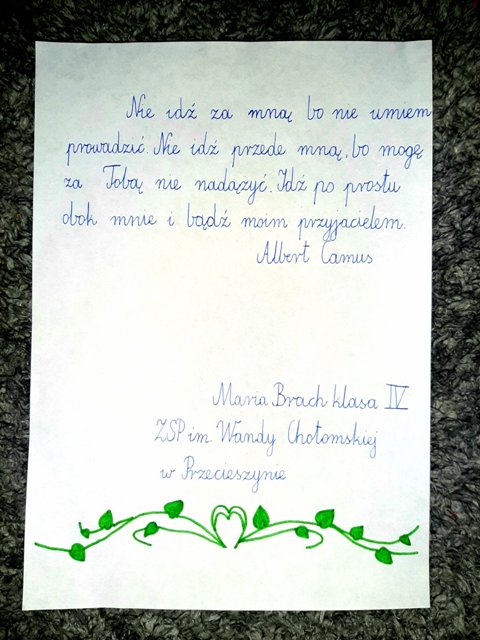 Nie idź za mną bo nie umiem
prowadzić. Nie idź przede mną, bo mogę
za Tobą nie nadążyć. Idź po prostu
obok mnie i bądź moim przyjacielem.
Albert Camus
Maria Brach klasa IV
ZSP im. Wandy Chotomskiej
w Przecieszynie